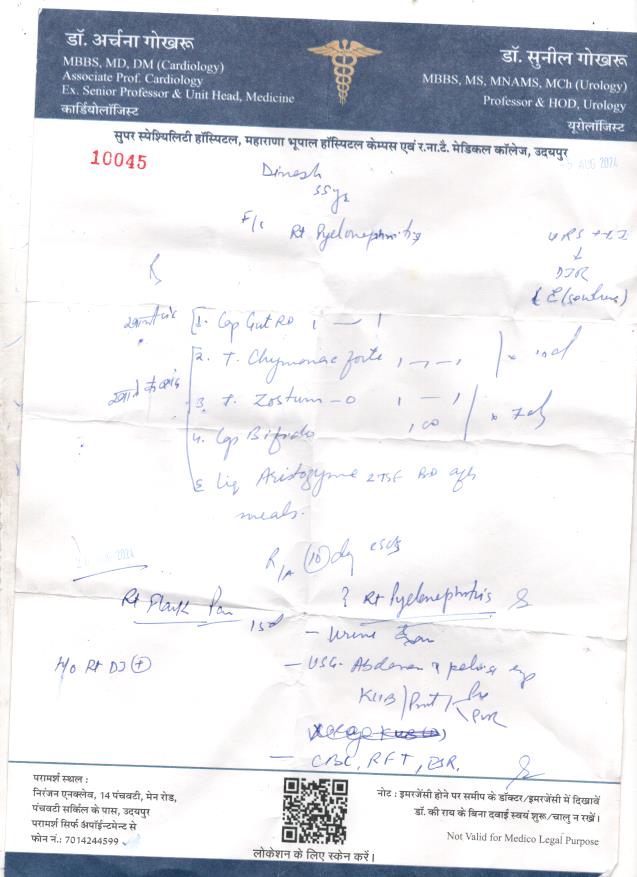 डॉ. अर्चना गोखरू
MBBS, MD, DM (Cardiology)
Associate Prof. Cardiology
Ex. Senior Professor & Unit Head, Medicine
कार्डियोलॉजिस्ट
डॉ. सुनील गोखरू
MBBS, MS, MNAMS, MCh (Urology)
Professor & HOD, Urology
यूरोलॉजिस्ट
सुपर स्पेश्यिलिटी हॉस्पिटल, महाराणा भूपाल हॉस्पिटल केम्पस एवं र.ना.टै. मेडिकल कॉलेज, उदयपुर
10045
AUG 2024
Dinesh
F/c Rt Pyelonephritis
URS
DJR
1. Cap Gut RD 1 — 1
2. T. Chymonac forte 1 — 1
खाने के बाद
3. T. Zostum-O 1 — 1
x 7d
4. Cap Bifido
5 Liq Aristozyme 2TSF BD after
meals.
R/A (10) day
2024
Rt Flank Pain
? Rt Pyelonephritis
- Urine
H/o Rt DJ (+)
- USG- Abdomen & pelvis
KUB / Prost / Pre
PVR
- CBC, RFT,
परामर्श स्थल :
निरंजन एनक्लेव, 14 पंचवटी, मेन रोड,
पंचवटी सर्किल के पास, उदयपुर
परामर्श सिर्फ अपॉईन्टमेन्ट से
फोन नं.: 7014244599
लोकेशन के लिए स्केन करें।
नोट : इमरजेंसी होने पर समीप के डॉक्टर/इमरजेंसी में दिखावें
डॉ. की राय के बिना दवाई स्वयं शुरू/चालु न रखें।
Not Valid for Medico Legal Purpose